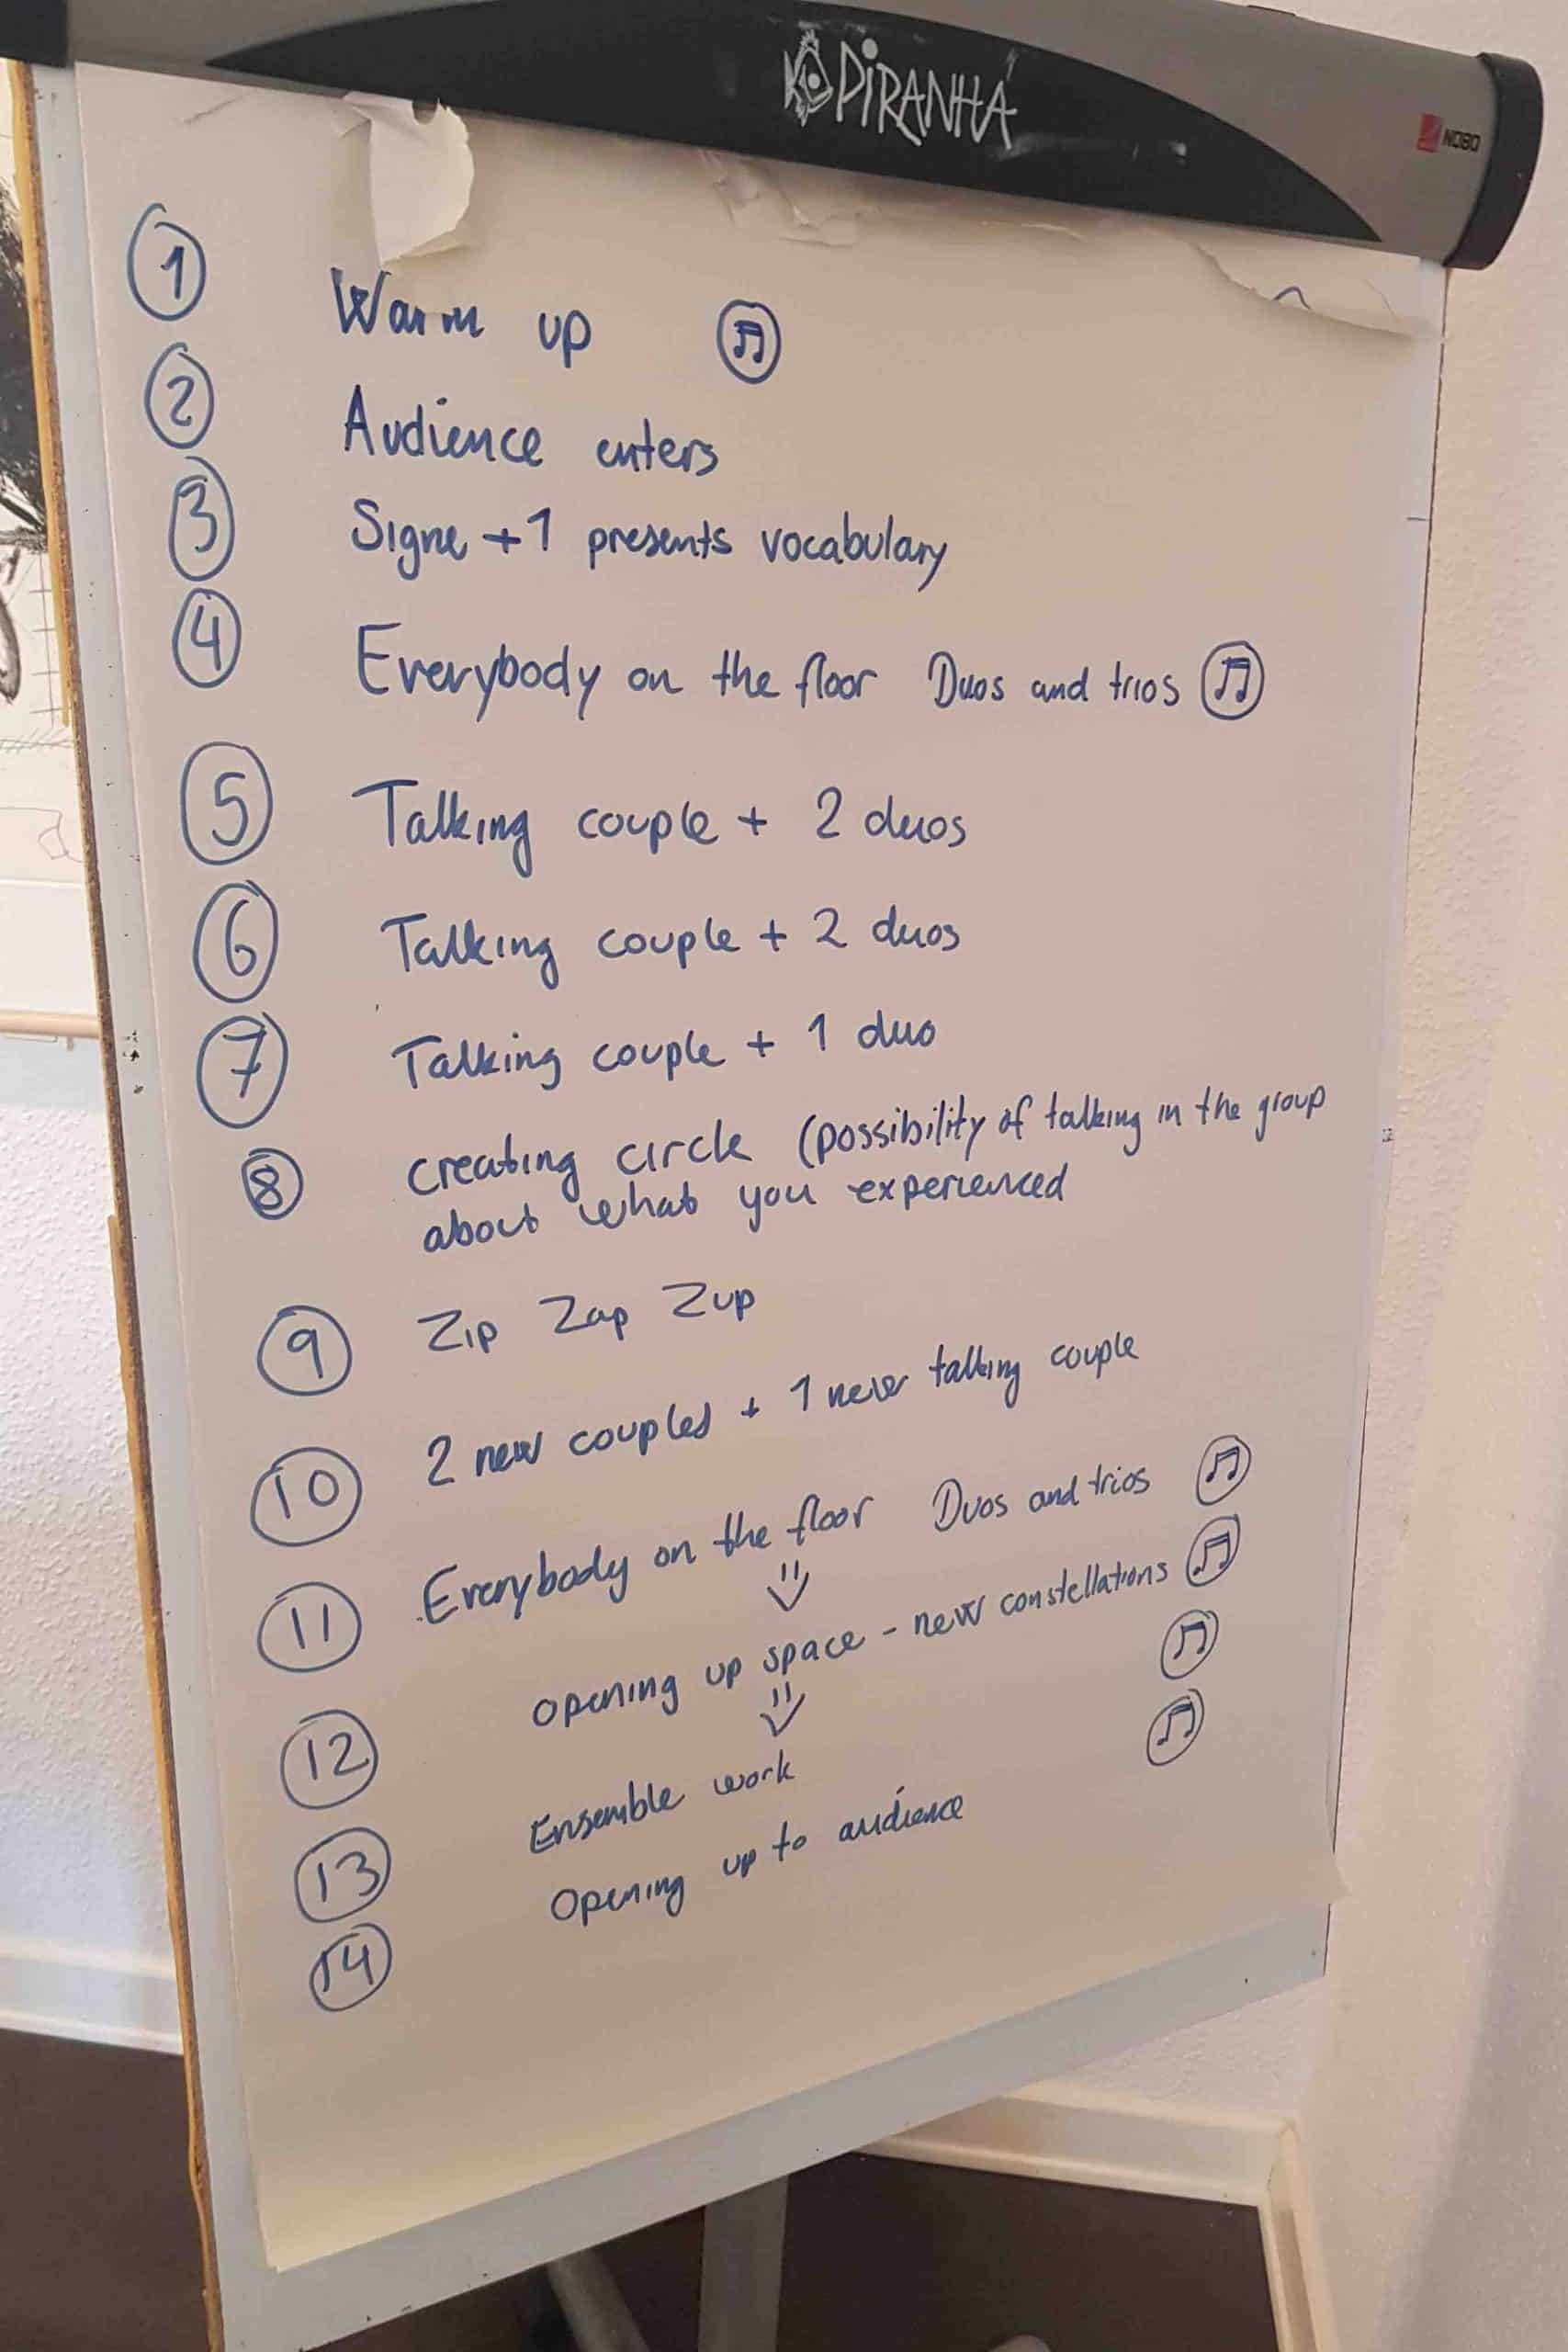 PIRANHA
NOBO
1 Warm up
2 Audience enters
3 Signe + 1 presents vocabulary
4 Everybody on the floor Duos and trios
5 Talking couple + 2 duos
6 Talking couple + 2 duos
7 Talking couple + 1 duo
8 creating circle (possibility of talking in the group
about what you experienced
9 Zip Zap Zup
10 2 new couples + 1 new talking couple
11 Everybody on the floor Duos and trios
12 opening up space - new constellations
13 Ensemble work
14 Opening up to audience